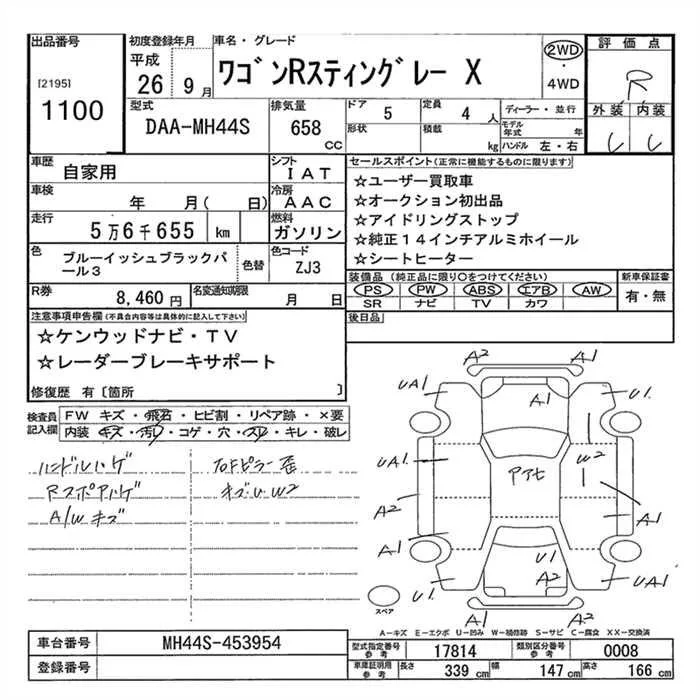 出品番号
[2195]
1100
初度登録年月
平成
26年 9月
車名・グレード
ワゴンRスティングレー X
2WD
・
4WD
評価点
R
外装 内装
型式
DAA-MH44S
排気量
658
CC
ドア 5
形状
定員 4人
積載 kg
ディーラー・並行
モデル年式 年
ハンドル 左・右
車歴 自家用
シフト IAT
車検 年 月(日)
冷房 AAC
走行 5万6千655 km
燃料 ガソリン
色 ブルーイッシュブラックパール3
色替
色コード ZJ3
R券 8,460円
名変通知期限 月 日
セールスポイント(正常に機能するものに限ります)
☆ユーザー買取車
☆オークション初出品
☆アイドリングストップ
☆純正14インチアルミホイール
☆シートヒーター
装備品(純正品に限り○をつけてください)
PS PW ABS エアB AW
SR ナビ TV カワ
新車保証書
有・無
後日品
注意事項申告欄(不具合内容等は具体的に記入して下さい)
☆ケンウッドナビ・TV
☆レーダーブレーキサポート
修復歴 有〔箇所 〕
検査員記入欄
FW キズ・飛石・ヒビ割・リペア跡・×要
内装・キズ・汚れ・コゲ・穴・スレ・キレ・破レ
ハンドルハゲ
RスポアハゲA/Wキズ
キズ・U W2
A2
A1
UA1
A1
U1
UA1
W2
A2
A1
A1
U1
A2
U1
UA1
A1
A2
スペア
A-キズ E-エクボ U-凹み W-補修跡 S-サビ C-腐食 XX-交換済
車台番号 MH44S-453954
登録番号
型式指定番号 参考 17814
類別区分番号 参考 0008
車庫証明用 参考
長さ 339cm
幅 147cm
高さ 166cm